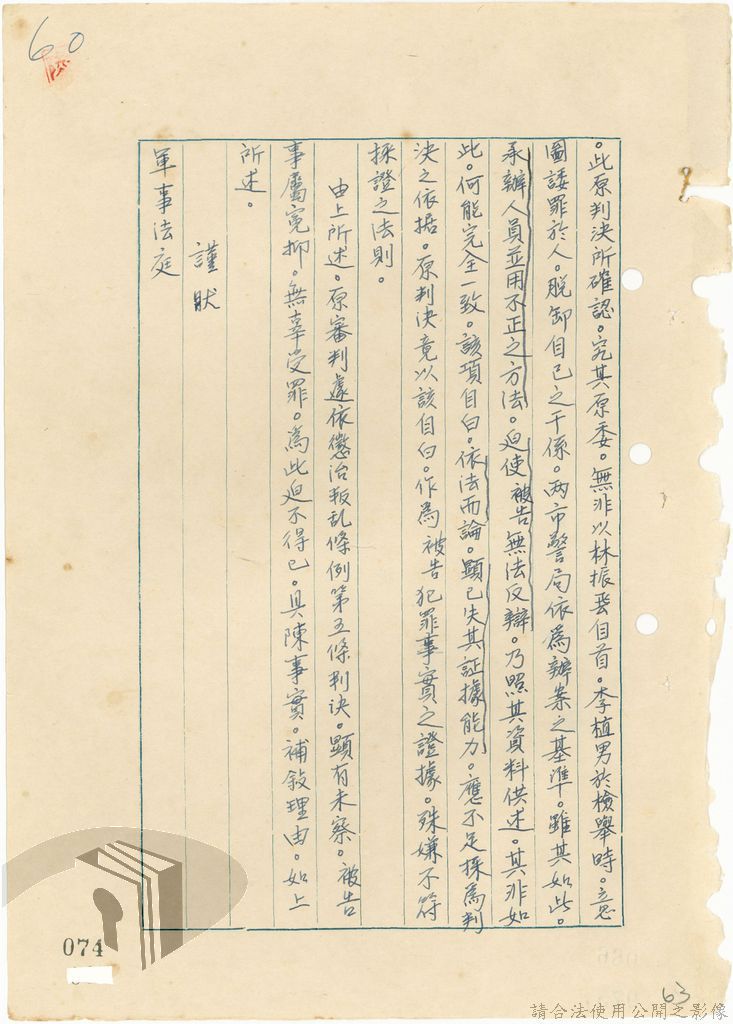 60
。此原判決所確認。究其原委。無非以林振霖自首。李植男於檢舉時。意
圖諉罪於人。脫卸自己之干係。兩市警局依為辦案之基準。雖其如此。
承辦人員並用不正之方法。迫使被告無法反辯。乃照其資料供述。其非如
此。何能完全一致。該項自白。依法而論。顯已失其証據能力。應不足採為判
決之依据。原判決竟以該自白。作為被告犯罪事實之證據。殊嫌不符
採證之法則。
由上所述。原審判處依懲治叛乱條例第五條判決。顯有未察。被告
事屬寃抑。無辜受罪。為此迫不得已。具陳事實。補敍理由。如上
所述。
謹狀
軍事法庭
074
63
請合法使用公開之影像